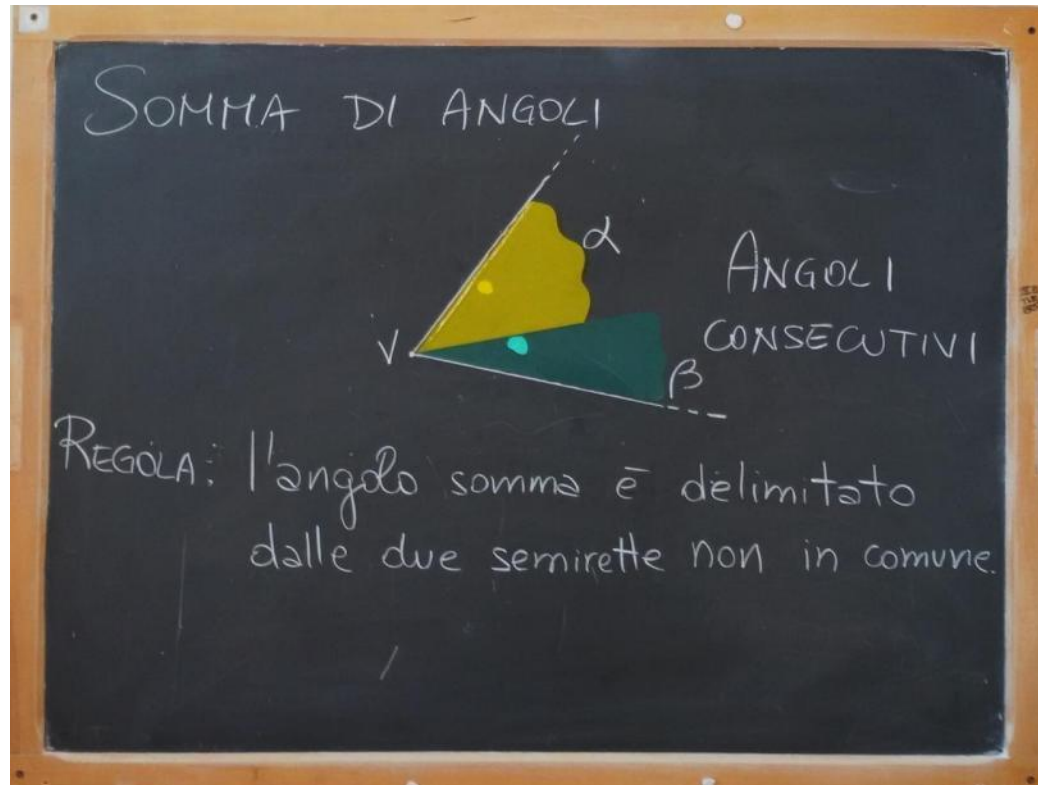 SOMMA DI ANGOLI
α
ANGOLI
CONSECUTIVI
V
β
REGOLA: l'angolo somma è delimitato
dalle due semirette non in comune.